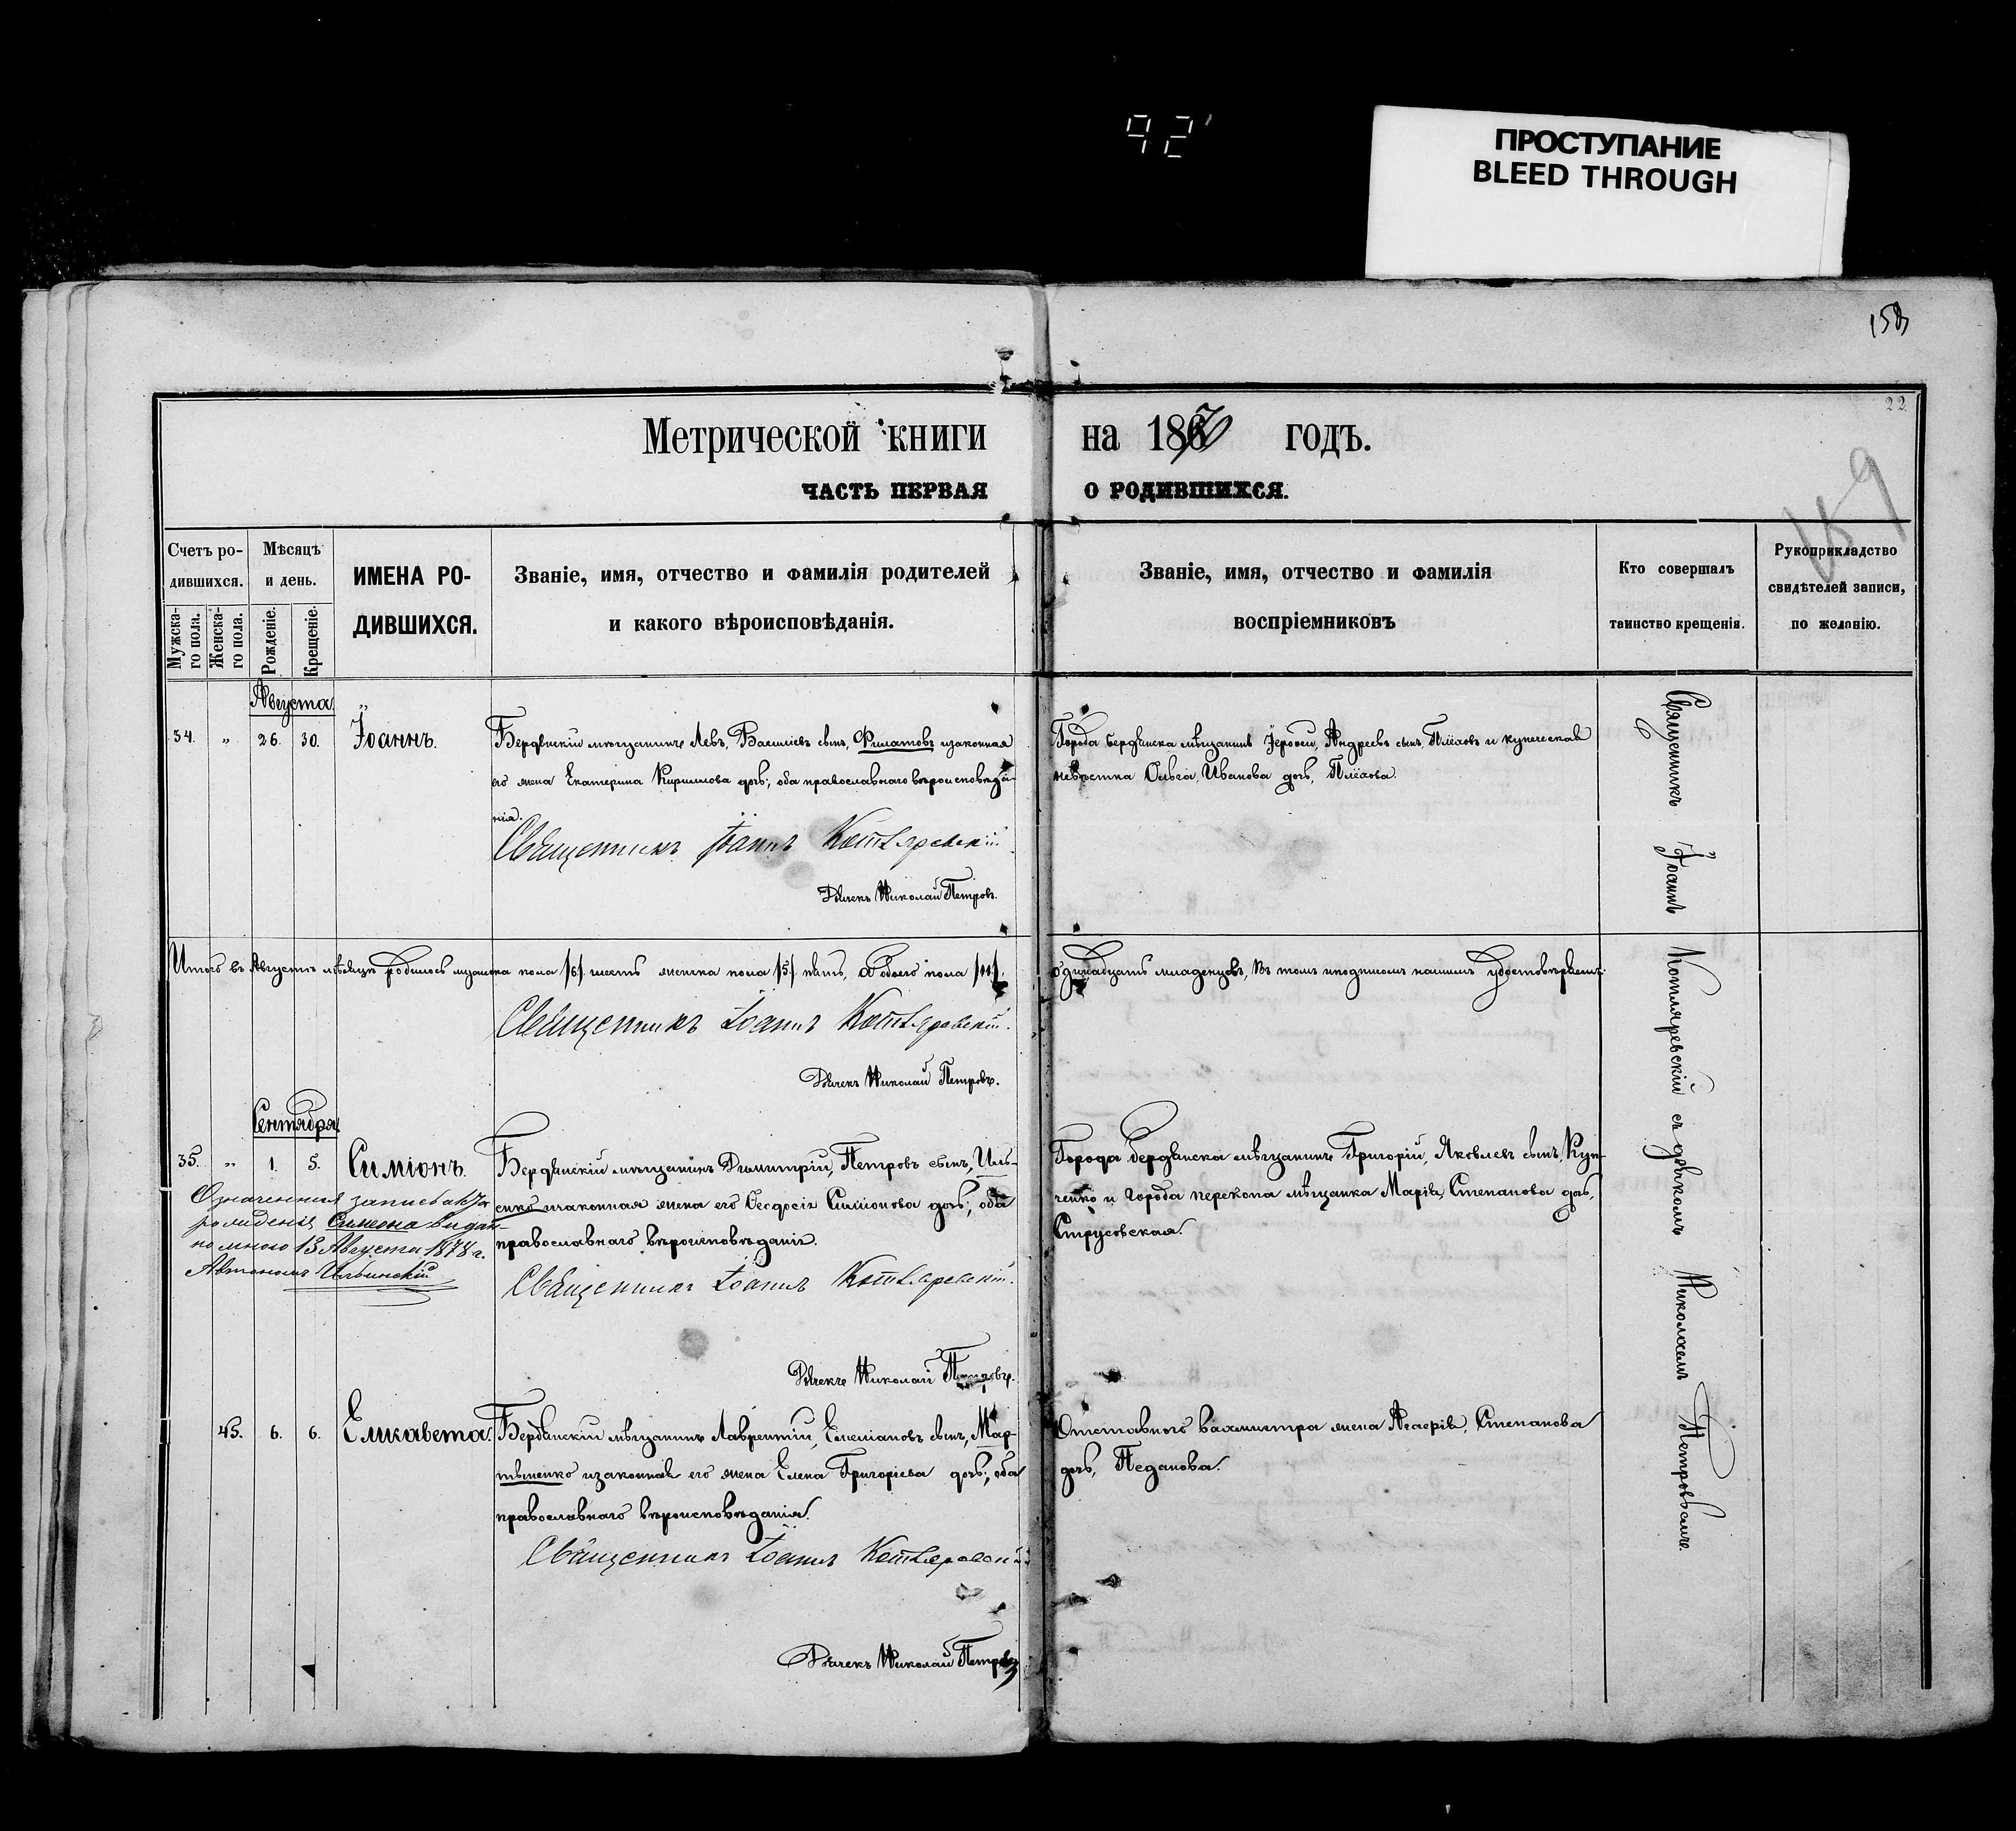 92
ПРОСТУПАНИЕ
BLEED THROUGH
159
22
159
Метрической книги на 1870 годъ.
ЧАСТЬ ПЕРВАЯ О РОДИВШИХСЯ.
Счетъ ро-
дившихся.
Мужска-
го пола.
Женска-
го пола.
Мѣсяцъ
и день.
Рожденіе.
Крещеніе.
ИМЕНА РО-
ДИВШИХСЯ.
Званіе, имя, отчество и фамилія родителей
и какого вѣроисповѣданія.
Званіе, имя, отчество и фамилія
воспріемниковъ
Кто совершалъ
таинство крещенія.
Рукоприкладство
свидѣтелей записи,
по желанію.
Августа
34. „ 26. 30. Іоаннъ.
Бердянскій мѣщанинъ Левъ, Васильевъ сынъ, Филатовъ изаконная
его жена Екатерина Кириллова дочь; оба православнаго вѣроисповѣда-
нія.
Священникъ Іоаннъ Котляревскій.
Дьячекъ Николай Петровъ.
Города Бердянска мѣщанинъ Іерофей, Андреевъ сынъ, Плёховъ и купеческая
невѣстка Ольга Иванова дочь, Плёхова.
Итого въ Августѣ мѣсяцѣ родилось мужеска пола /6/ шесть женска пола /5/ пять, а обоего пола /11/. одинадцать младенцовъ, въ томъ подписомъ нашимъ удостовѣряемъ.
Священникъ Іоаннъ Котляревскій.
Дьячекъ Николай Петровъ.
Сентября
35. „ 1. 5. Симіонъ.
Бердянскій мѣщанинъ Димитрій, Петровъ сынъ, Иль-
енко изаконная жена его Ѳеодосія Симіонова дочь; оба
православнаго вѣроисповѣданія.
Священникъ Іоаннъ Котляревскій.
Дьячекъ Николай Петровъ.
Города Бердянска мѣщанинъ Григорій, Яковлевъ сынъ, Куп-
ченко и города Перекопа мѣщанка Марія, Степанова дочь,
Струсовская.
рожденія Симеона выдан-
но мною 13 Августа 1878 г.
45. 6. 6. Елисавета.
Бердянскій мѣщанинъ Лаврентій, Емеліановъ сынъ, Мар-
тыненко изаконная его жена Елена Григоріева дочь; оба
православнаго вѣроисповѣданія.
Священникъ Іоаннъ Котляревскій
Дьячекъ Николай Петровъ
Отставнаго вахмистра жена Агаѳія, Степанова
дочь, Педанова.
Священникъ Іоаннъ Котляревскій съ дьячкомъ Николаемъ Петровымъ.